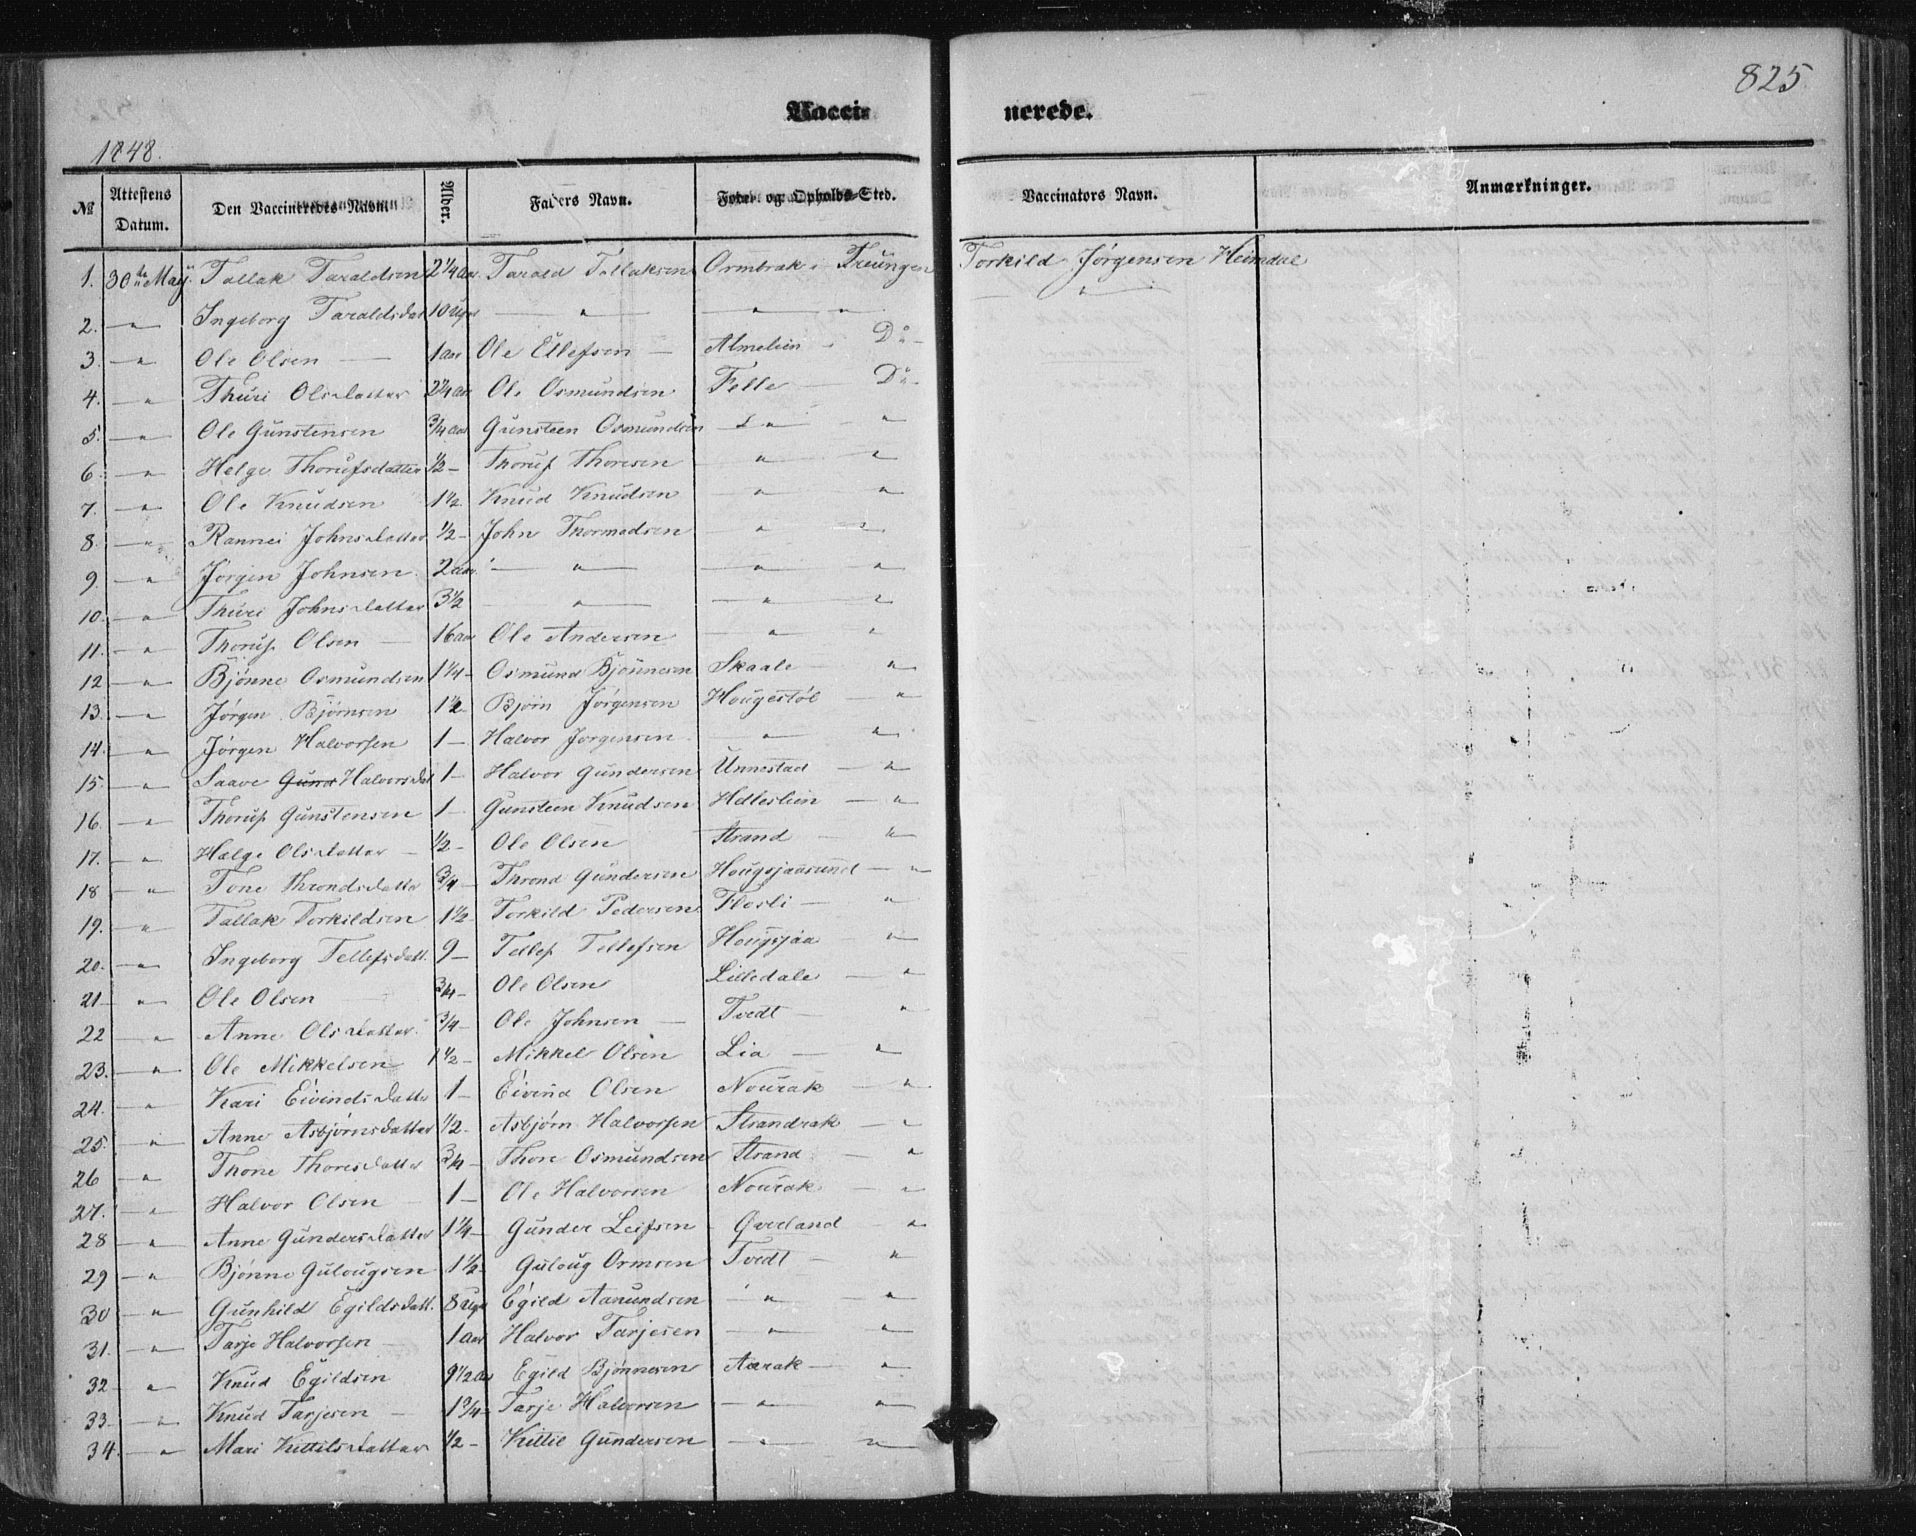 825
Vaccinerede.
1848.
№ Attestens Datum. Den Vaccineredes Navn. Alder. Faders Navn. Føde- og Opholds-Sted. Vaccinators Navn. Anmærkninger.
1. 30te May Tallak Taraldsen 2 1/4 aar Tarald Tallaksen Ormbrak i Treungen Torkild Jørgensen Heimdal
2. — " Ingeborg Taraldsdat 10 Uger — " — — " — " — " —
3. — " Ole Olsen — 1 aar Ole Ellefsen — Almelien " Do —
4. — " Thuri Olsdatter 2 1/4 aar Ole Osmundsen Felle — Do —
5. — " Ole Gunstensen 3/4 aar Gunsteen Osmundsen — " — "
6. — " Helge Thorufsdatter 1/2 — Thoruf Thoresen — " — "
7. — " Ole Knudsen 1 1/2 Knud Knudsen — " — "
8. — " Rannei Johnsdatter 1/2 — John Thormodsen — " — "
9. — " Jørgen Johnsen 2 aar — " — — " — "
10. — " Thuri Johnsdatter 3 1/2 — " — — " — "
11. — " Thoruf Olsen — 16 aar Ole Andersen — " — "
12 — " Bjønne Osmundsen 1 1/4 — Osmund Bjønnesen Skaale — "
13. — " Jørgen Bjørnsen 1 1/2 Bjørn Jørgensen Hougestøl — "
14. — " Jørgen Halvorsen 1 — Halvor Jørgensen — " — "
15. — " Saave Gund Halvorsdat 1 — Halvor Gundersen Unnestad — "
16. — " Thoruf Gunstensen 1 — Gunsteen Knudsen Helleslien — "
17. — " Hælge Olsdatter — 1/2 — Ole Olsen Strand — "
18 — " Tone Throndsdatter 3/4 — Thrond Gundersen Hougsjaasund — "
19. — " Tallak Torkildsen 1 1/2 — Torkild Pedersen Flosli — "
20. — " Ingeborg Tellefsdatt. 9 — Tellef Tellefsen Hougsjaa — "
21 — " Ole Olsen — 3/4 — Ole Olsen Lilledale — "
22 — " Anne Olsdatter 3/4 — Ole Johnsen — Tvedt — "
23. — " Ole Mikkelsen 1 1/2 — Mikkel Olsen Lia — "
24. — " Kari Eivindsdatter 1 — Eivind Olsen Nourak — "
25. — " Anne Asbjørnsdatter 1/2 — Asbjørn Halvorsen Strandrak — "
26 — " Thone Thoresdatter 3/4 — Thore Osmundsen Strand — "
27. — " Halvor Olsen — 1 — Ole Halvorsen Nourak — "
28 — " Anne Gundersdatter 1 1/4 — Gunder Leifsen Øverland — "
29 — " Bjønne Gulougsen 1 1/2 — Guloug Ormsen Tvedt — "
30 — " Gunhild Egildsdatt. 8 Uger Egild Aanundsen — " — "
31. — " Tarje Halvorsen — 1 aar Halvor Tarjesen — " — "
32 — " Knud Egildsen 9 1/2 aar Egild Bjønnesen Aarak — "
33. — " Knud Tarjesen — 1 3/4 — Tarje Halvorsen — " — "
34. — " Mari Kittilsdatter 1/2 — Kittil Gundersen — " — "